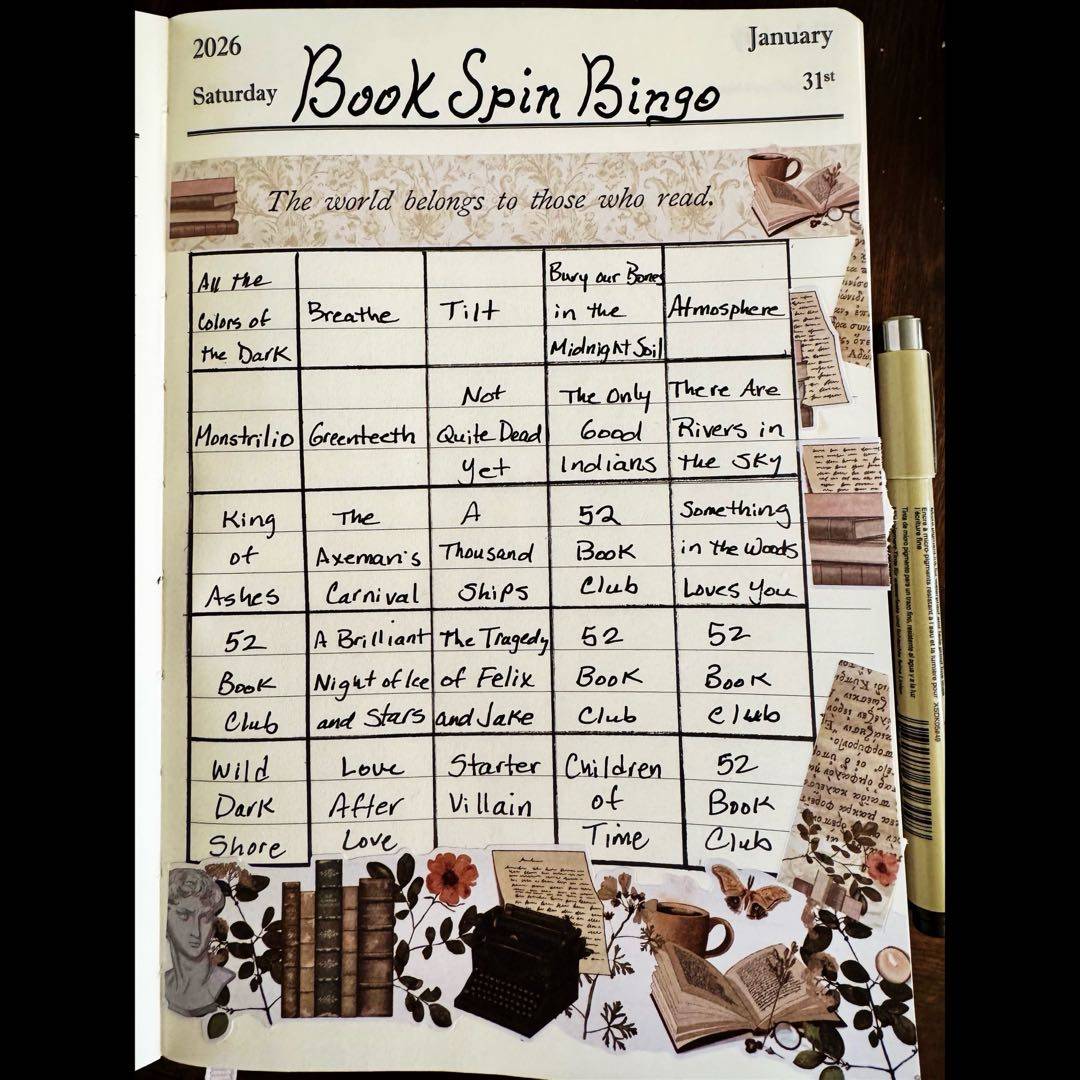 2026
January
Saturday
31st
Book Spin Bingo
The world belongs to those who read.
All the
Colors of
the Dark
Breathe
Tilt
Bury our Bones
in the
Midnight Soil
Atmosphere
Monstrilio
Greenteeth
Not
Quite Dead
Yet
The Only
Good
Indians
There Are
Rivers in
the Sky
King
of
Ashes
The
Axeman's
Carnival
A
Thousand
Ships
52
Book
Club
Something
in the Woods
Loves You
52
Book
Club
A Brilliant
Night of Ice
and Stars
The Tragedy
of Felix
and Jake
52
Book
Club
52
Book
Club
Wild
Dark
Shore
Love
After
Love
Starter
Villain
Children
of
Time
52
Book
Club